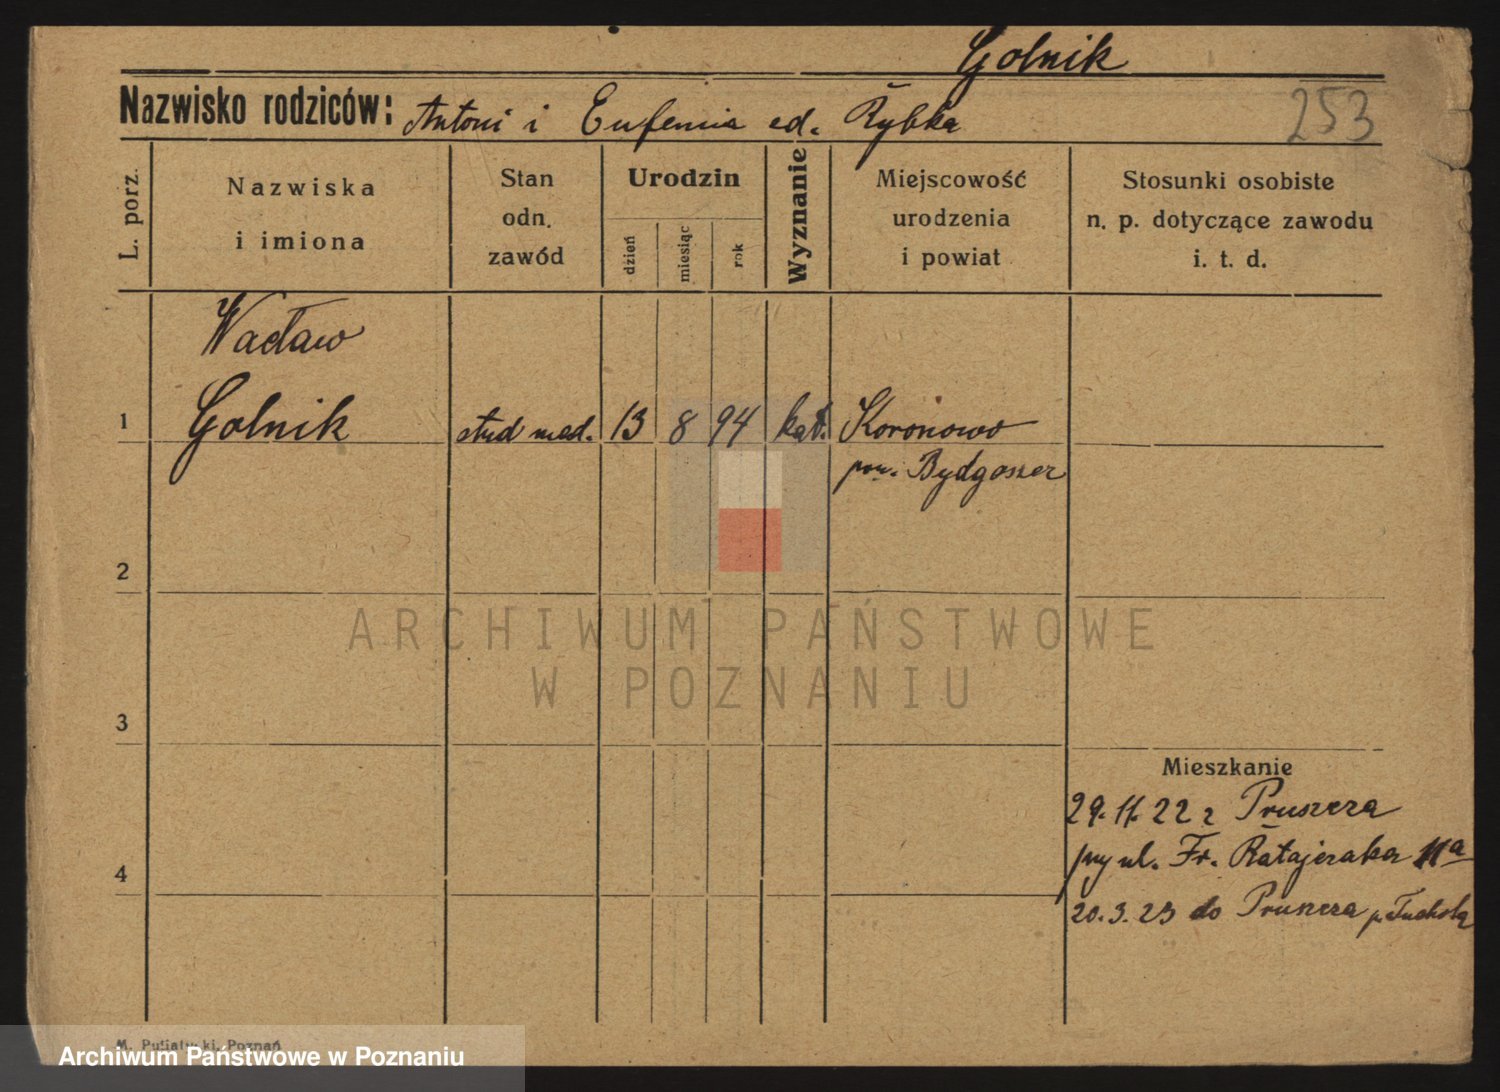 Golnik
Nazwisko rodziców: Antoni i Eufemia ed. Rybka
253
L. porz.
Nazwiska
i imiona
Stan
odn.
zawód
Urodzin
dzień
miesiąc
rok
Wyznanie
Miejscowość
urodzenia
i powiat
Stosunki osobiste
n. p. dotyczące zawodu
i. t. d.
Wacław
1 Golnik stud med. 13 8 94 kat. Koronowo
pow. Bydgoszcz
2
ARCHIWUM PAŃSTWOWE
W POZNANIU
3
Mieszkanie
29.11.22 z Pruszcza
przy ul. Fr. Ratajczaka 11a
4
20.3.23 do Pruszcza p. Tuchola
M. Putiatycki, Poznań
Archiwum Państwowe w Poznaniu